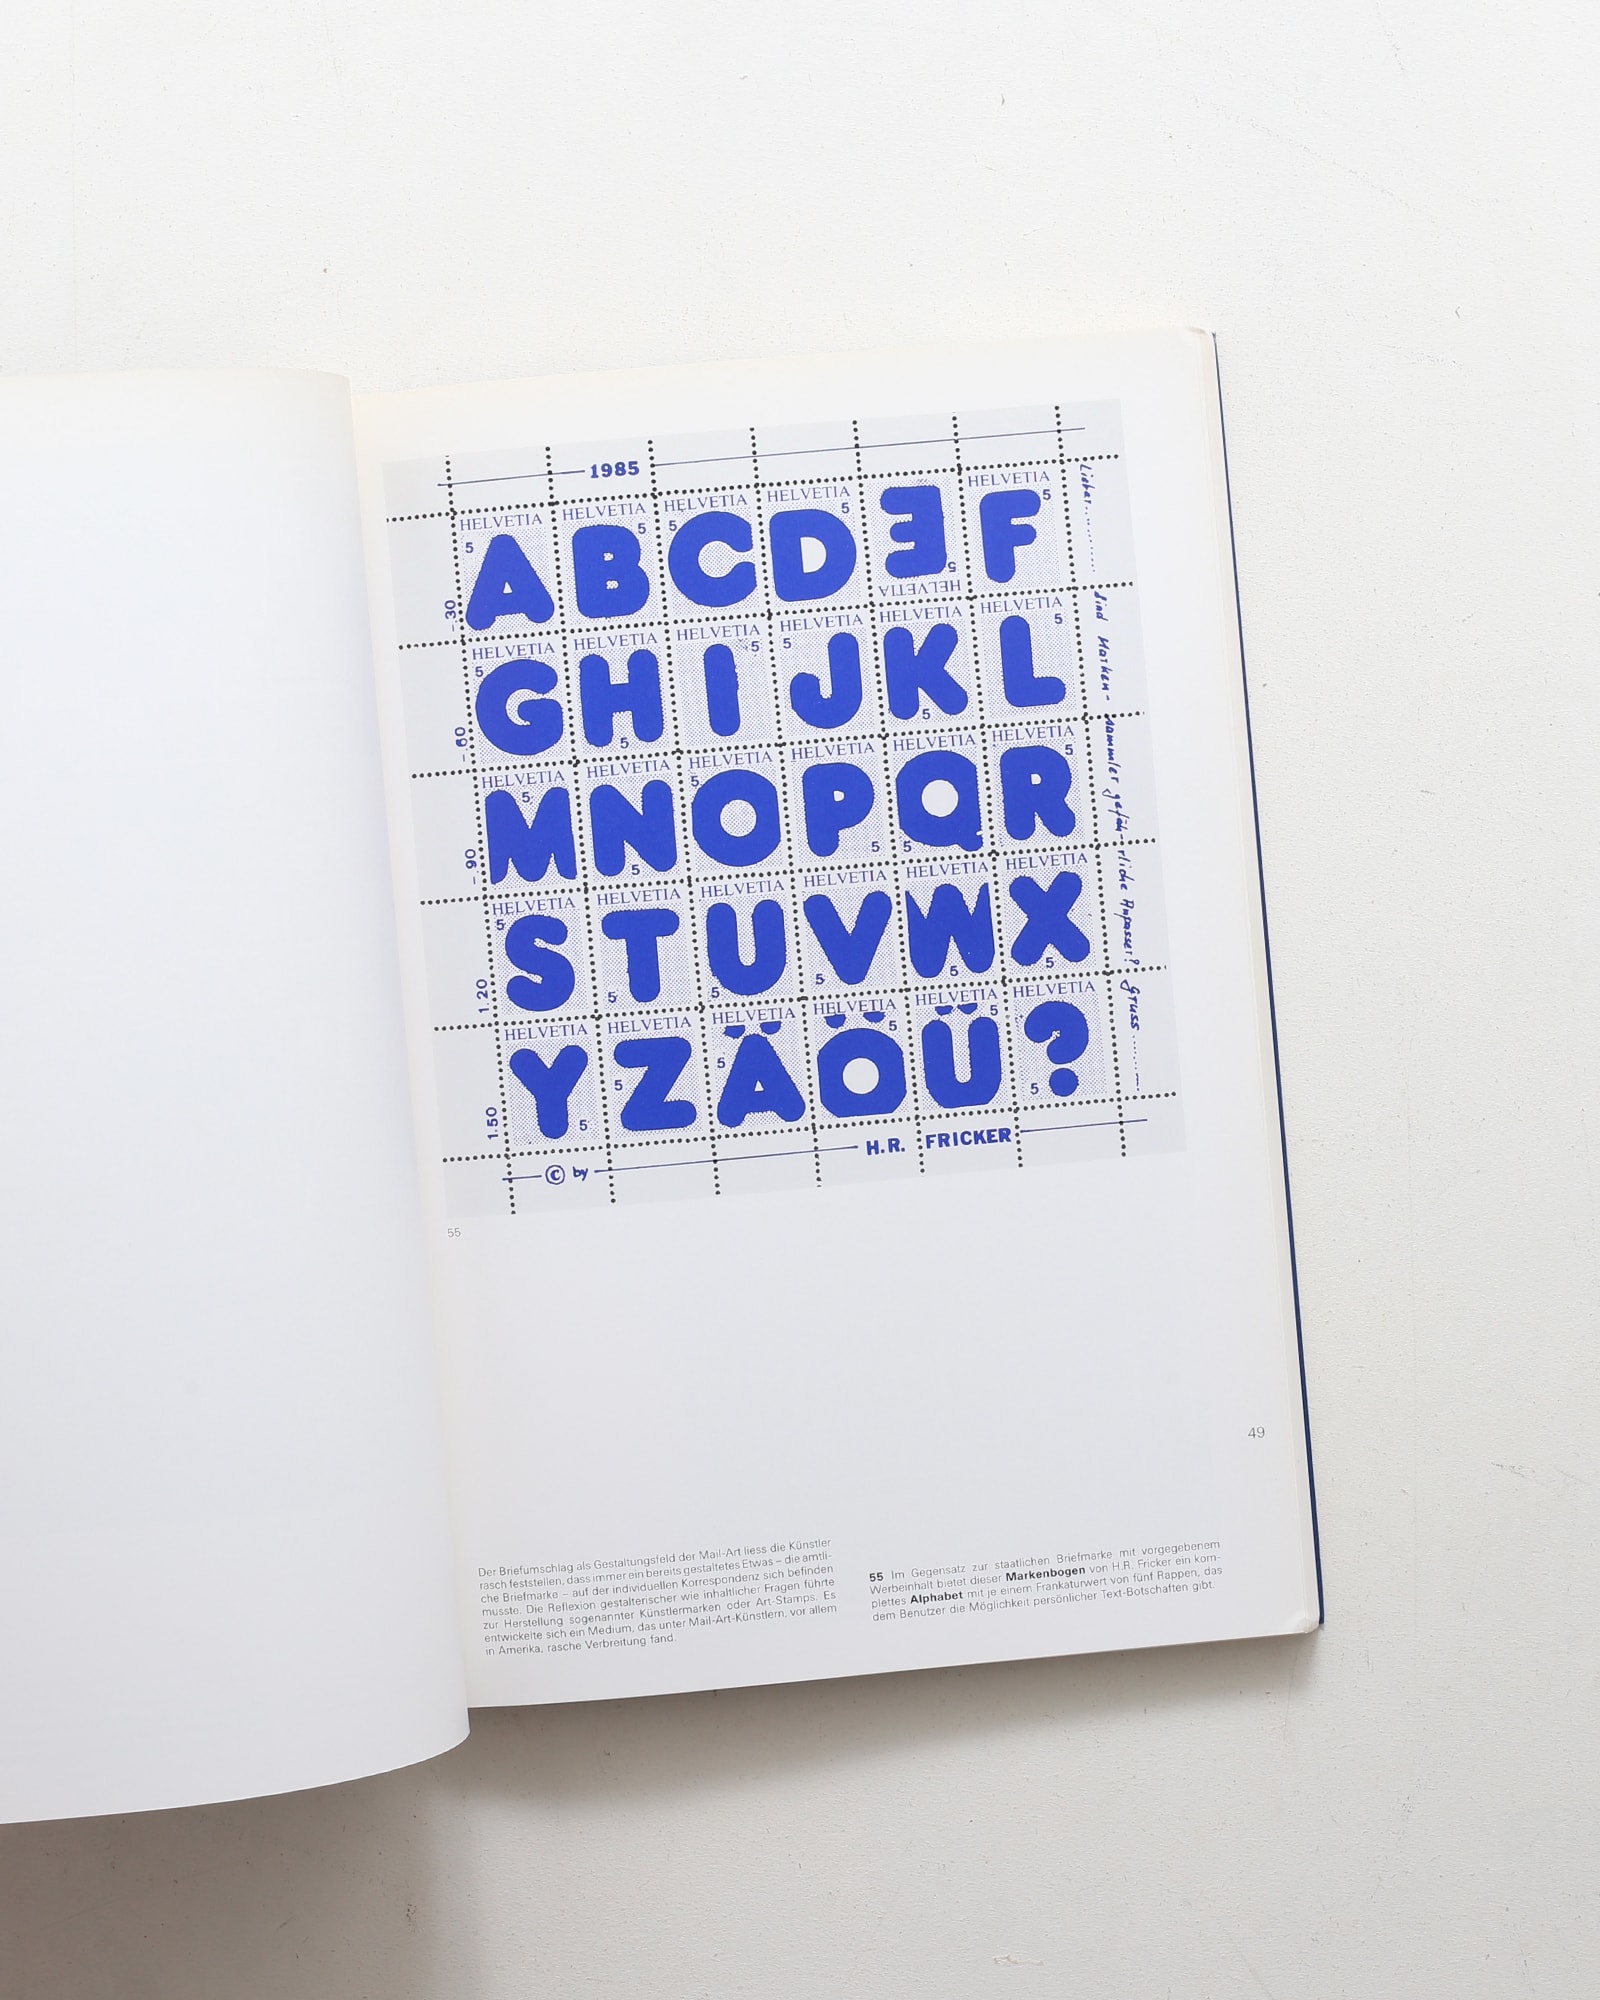 1985
HELVETIA HELVETIA HELVETIA HELVETIA HELVETIA HELVETIA
5 5 5 5 5 5
A B C D E F
-.30
HELVETIA HELVETIA HELVETIA HELVETIA HELVETIA HELVETIA
5 5 5 5 5 5
G H I J K L
-.60
HELVETIA HELVETIA HELVETIA HELVETIA HELVETIA HELVETIA
5 5 5 5 5 5
M N O P Q R
-.90
HELVETIA HELVETIA HELVETIA HELVETIA HELVETIA HELVETIA
5 5 5 5 5 5
S T U V W X
1.20
HELVETIA HELVETIA HELVETIA HELVETIA HELVETIA HELVETIA
5 5 5 5 5 5
Y Z Ä Ö Ü ?
1.50
Lieber........... Sind Marken-sammler gefäh-rliche Anpasser? Gruss........
© by H.R. FRICKER
55
49
Der Briefumschlag als Gestaltungsfeld der Mail-Art liess die Künstler
rasch feststellen, dass immer ein bereits gestaltetes Etwas – die amtli-
che Briefmarke – auf der individuellen Korrespondenz sich befinden
musste. Die Reflexion gestalterischer wie inhaltlicher Fragen führte
zur Herstellung sogenannter Künstlermarken oder Art-Stamps. Es
entwickelte sich ein Medium, das unter Mail-Art-Künstlern, vor allem
in Amerika, rasche Verbreitung fand.
55 Im Gegensatz zur staatlichen Briefmarke mit vorgegebenem
Werbeinhalt bietet dieser Markenbogen von H.R. Fricker ein kom-
plettes Alphabet mit je einem Frankaturwert von fünf Rappen, das
dem Benutzer die Möglichkeit persönlicher Text-Botschaften gibt.